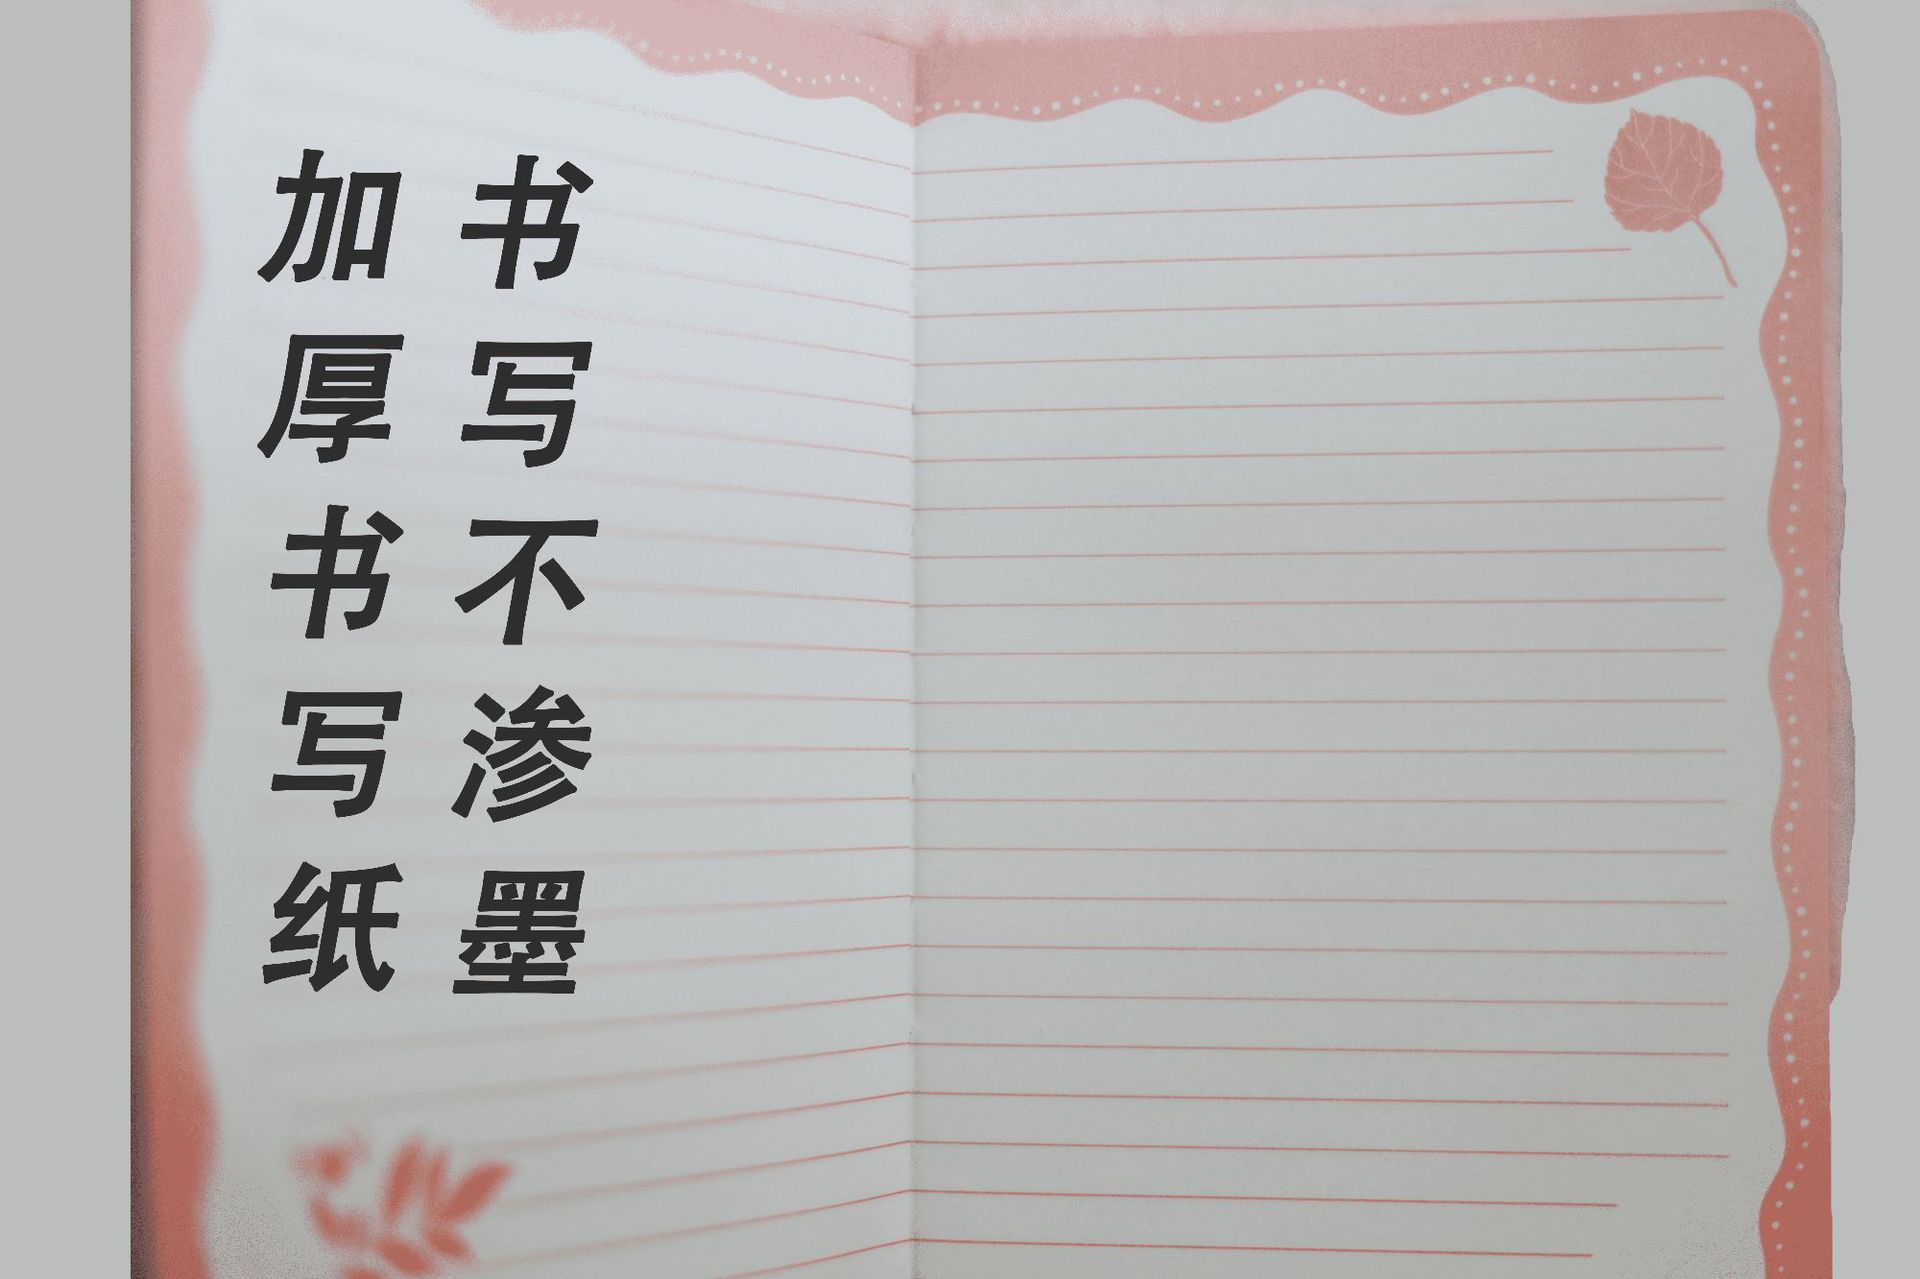 加厚书写纸
书写不渗墨